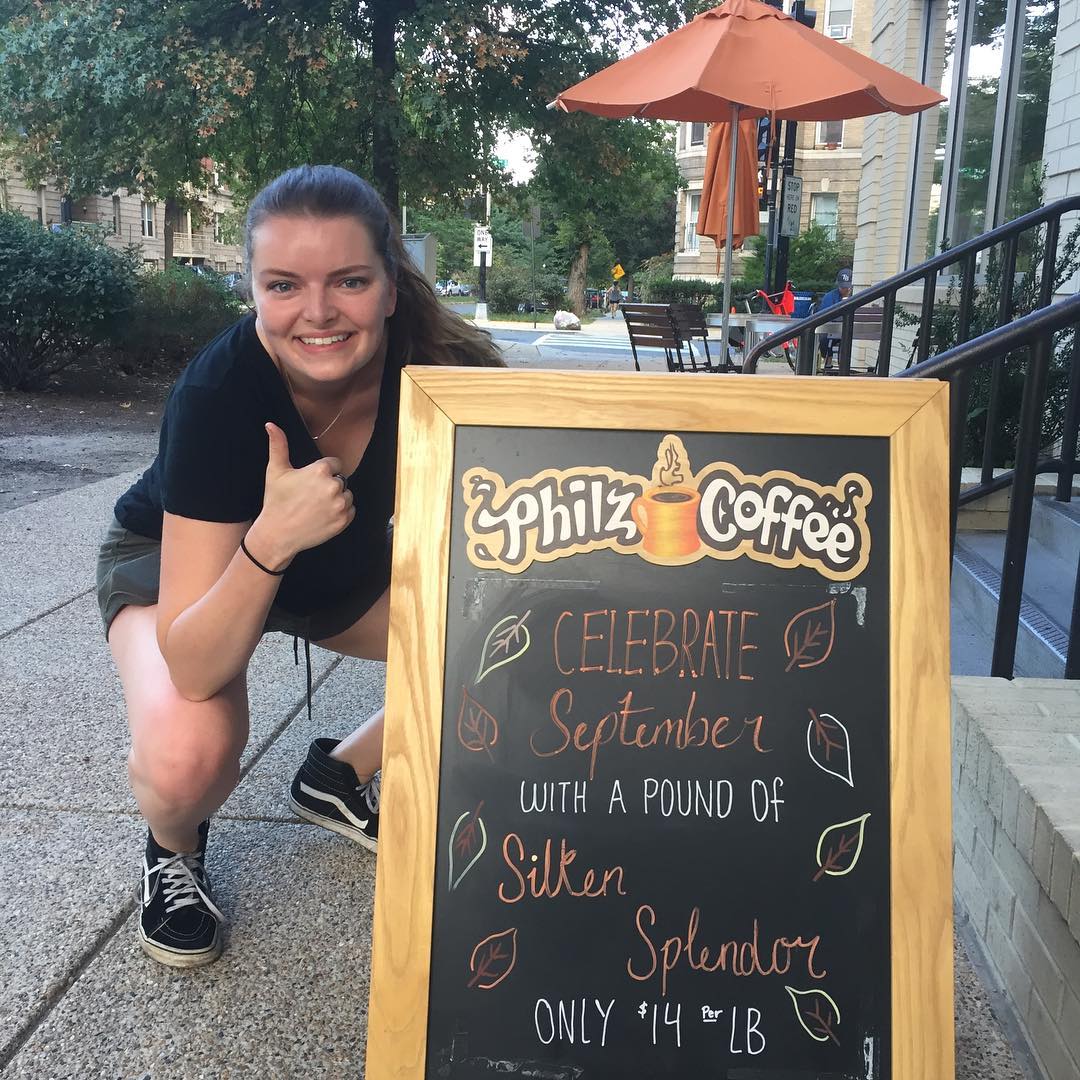 ONE
WAY
STOP
HERE ON
RED
Philz Coffee
CELEBRATE
September
WITH A POUND OF
Silken
Splendor
ONLY $14 Per LB